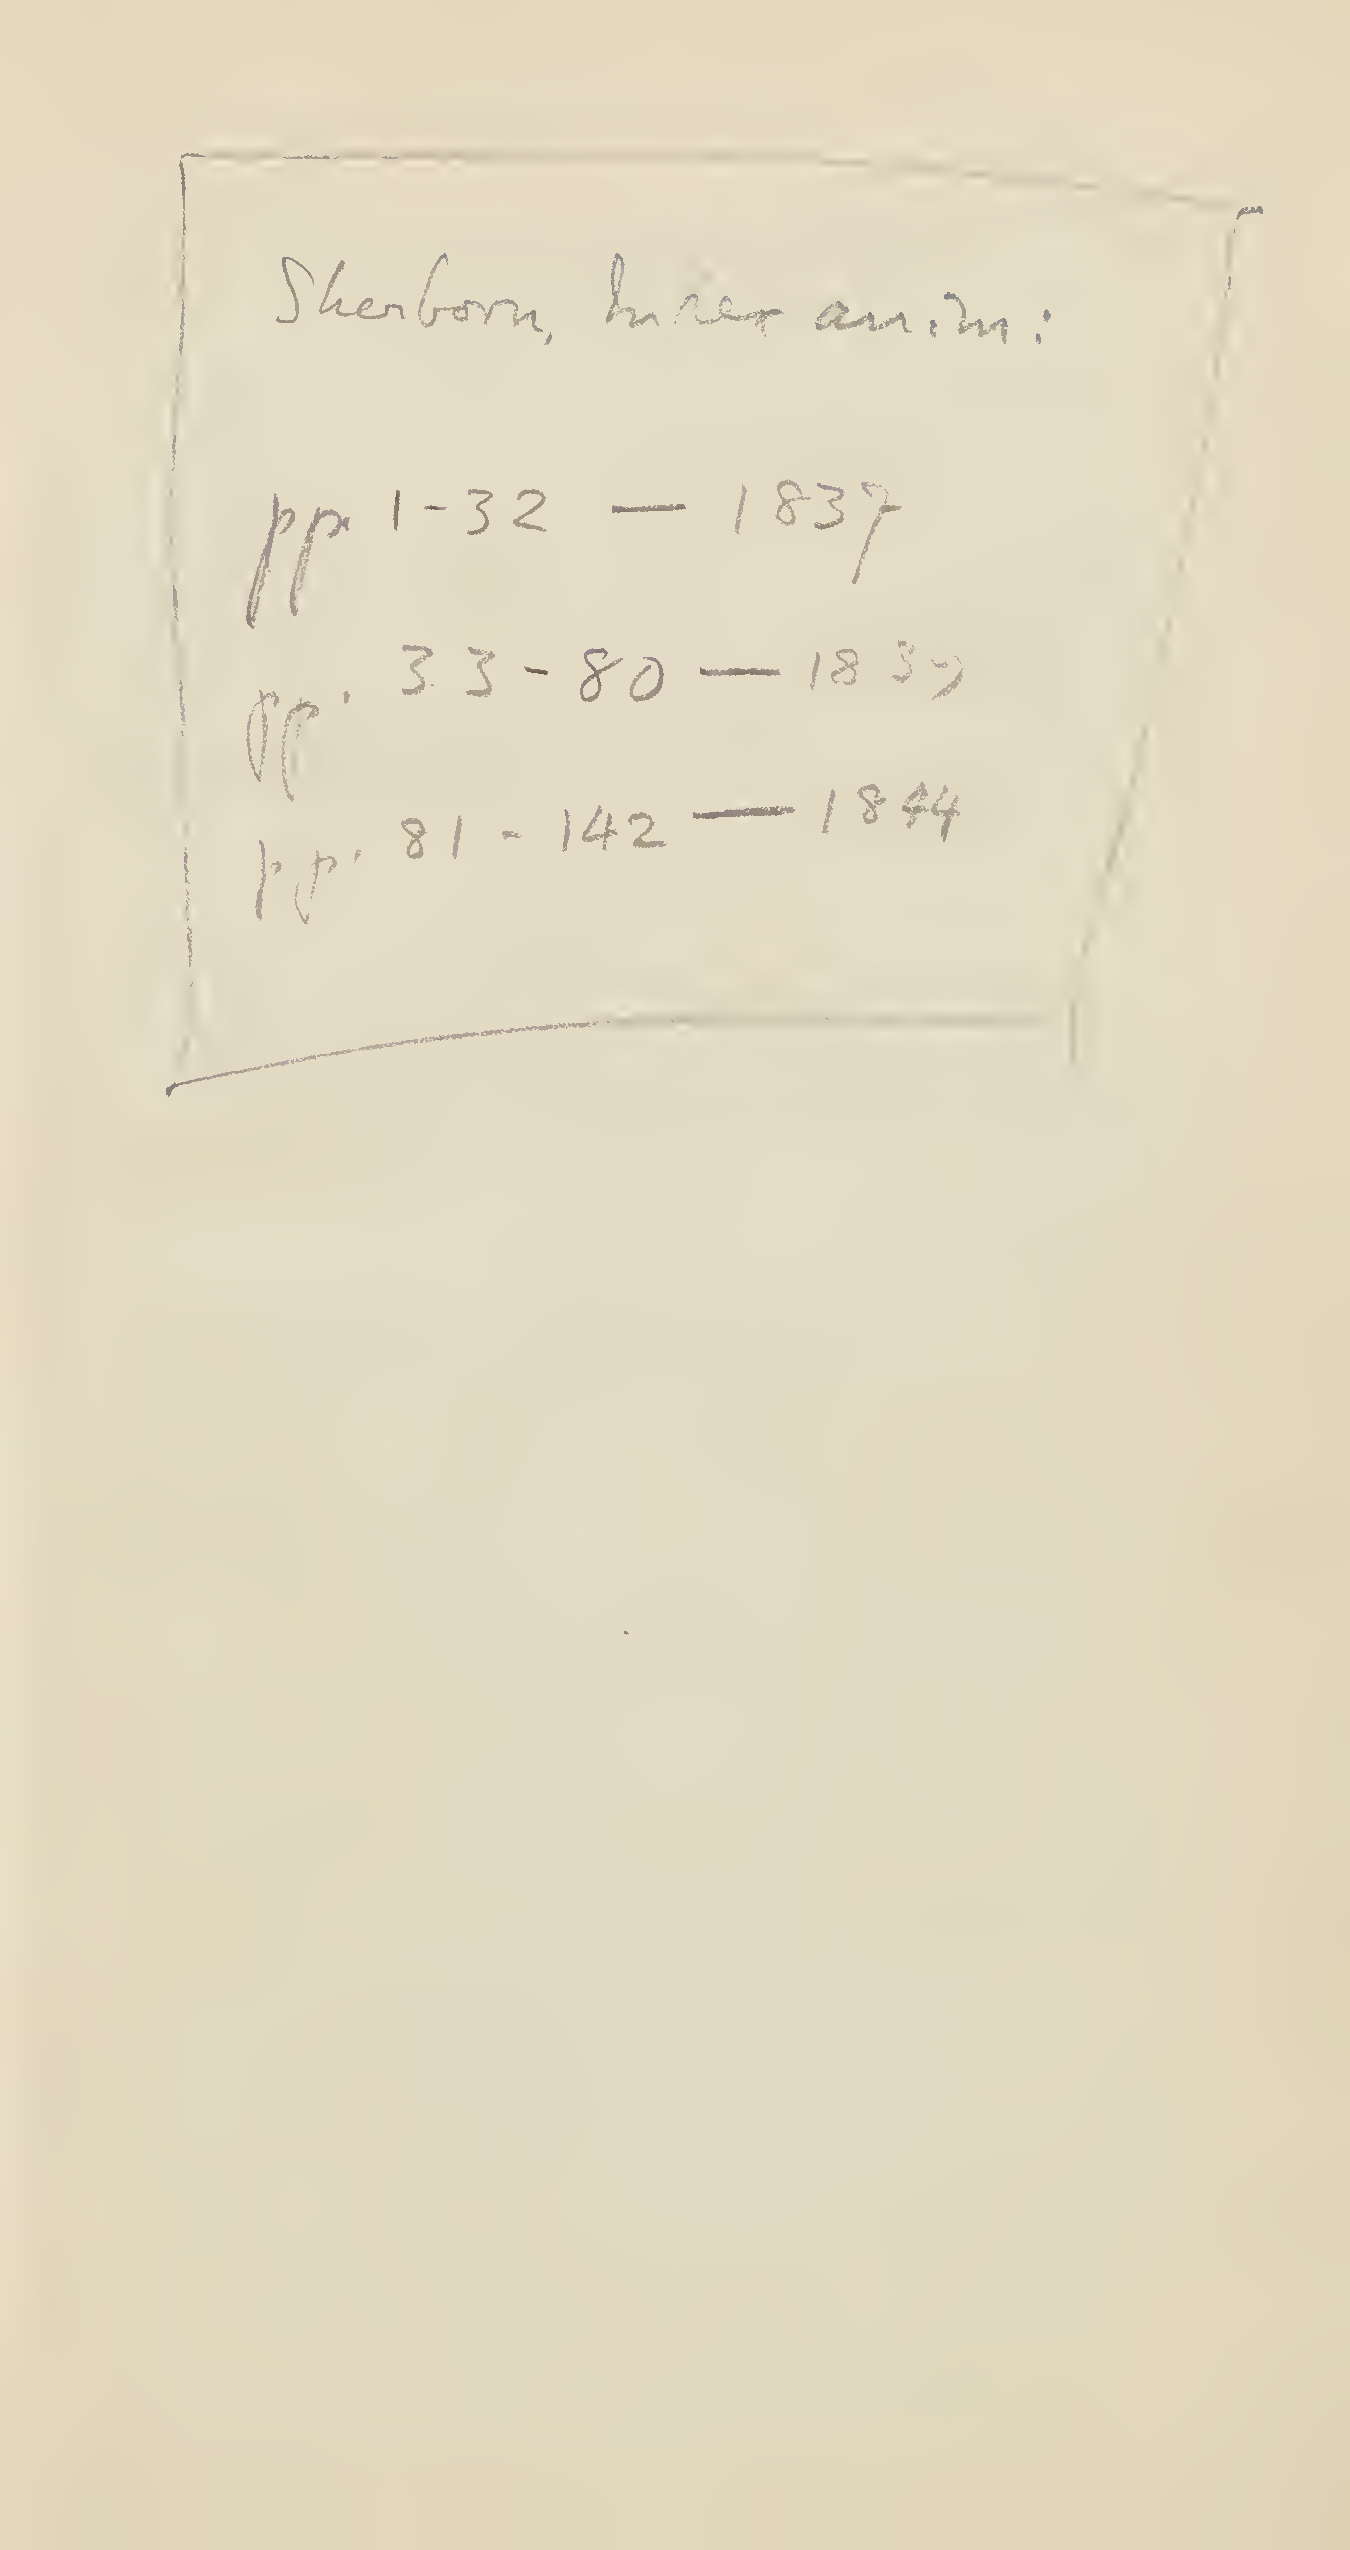 Sherborn, Index anim:
pp. 1-32 — 1837
pp. 33-80 — 1839
pp. 81-142 — 1844